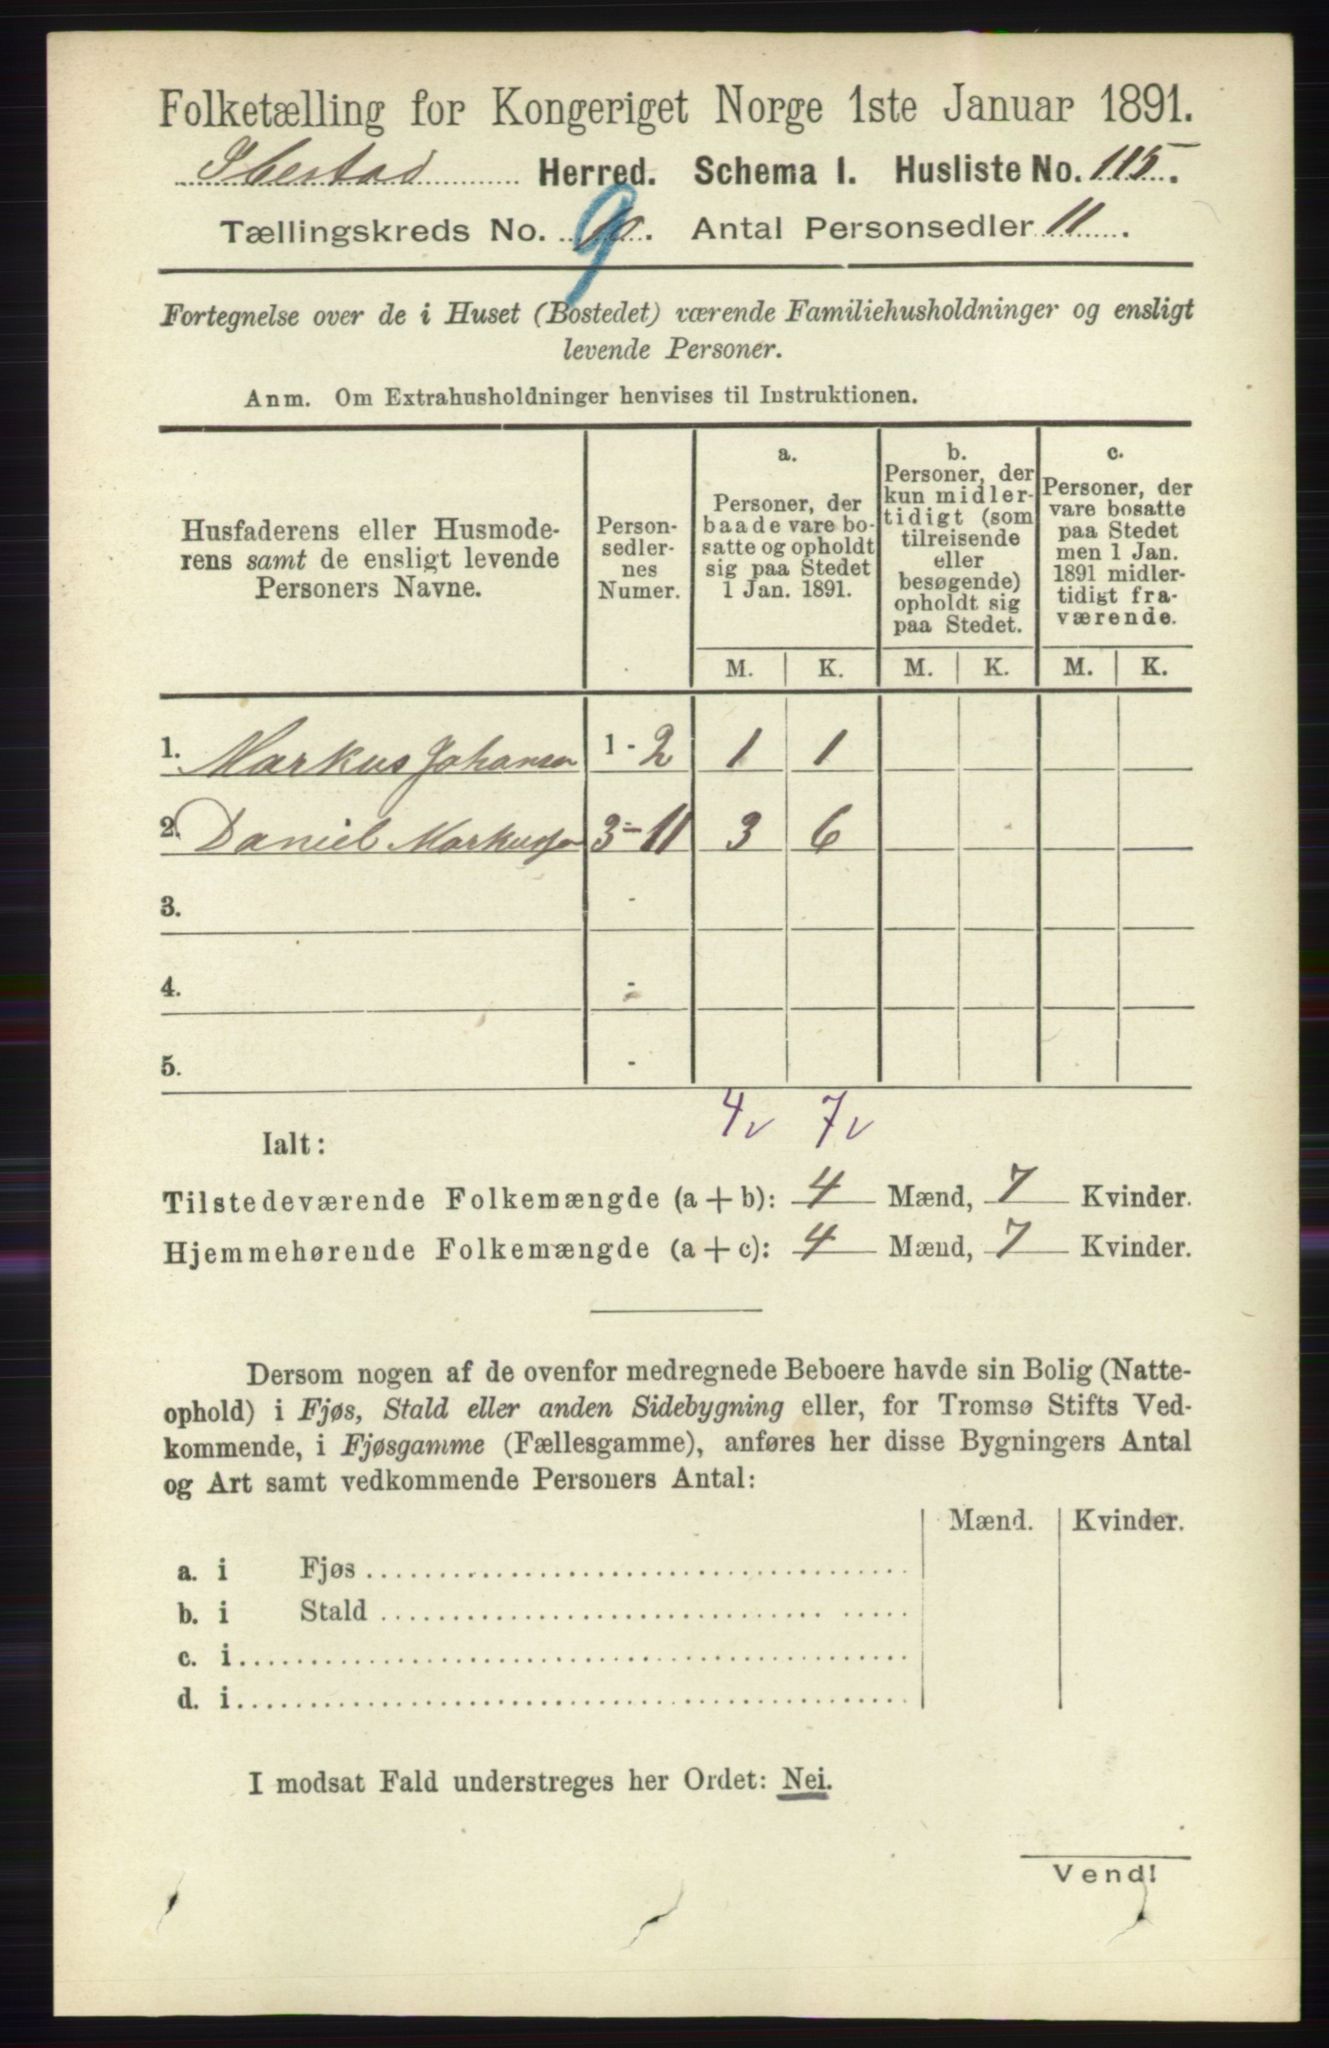 Folketælling for Kongeriget Norge 1ste Januar 1891.
Ibestad Herred. Schema I. Husliste No. 115.
Tællingskreds No. 10 9. Antal Personsedler 11.
Fortegnelse over de i Huset (Bostedet) værende Familiehusholdninger og ensligt
levende Personer.
Anm. Om Extrahusholdninger henvises til Instruktionen.
Husfaderens eller Husmode-
rens samt de ensligt levende
Personers Navne.
Person-
sedler-
nes
Numer.
a.
Personer, der
baade vare bo-
satte og opholdt
sig paa Stedet
1 Jan. 1891.
b.
Personer, der
kun midler-
tidigt (som
tilreisende
eller
besøgende)
opholdt sig
paa Stedet.
c.
Personer, der
vare bosatte
paa Stedet
men 1 Jan.
1891 midler-
tidigt fra-
værende.
M. K. M. K. M. K.
1. Markus Johansen 1 - 2 1 1
2. Daniel Markussen 3 - 11 3 6
3. -
4. -
5. -
4 v 7 v
Ialt:
Tilstedeværende Folkemængde (a + b): 4 Mænd, 7 Kvinder.
Hjemmehørende Folkemængde (a + c): 4 Mænd, 7 Kvinder.
Dersom nogen af de ovenfor medregnede Beboere havde sin Bolig (Natte-
ophold) i Fjøs, Stald eller anden Sidebygning eller, for Tromsø Stifts Ved-
kommende, i Fjøsgamme (Fællesgamme), anføres her disse Bygningers Antal
og Art samt vedkommende Personers Antal:
Mænd. Kvinder.
a. i Fjøs
b. i Stald
c. i
d. i
I modsat Fald understreges her Ordet: Nei.
Vend!